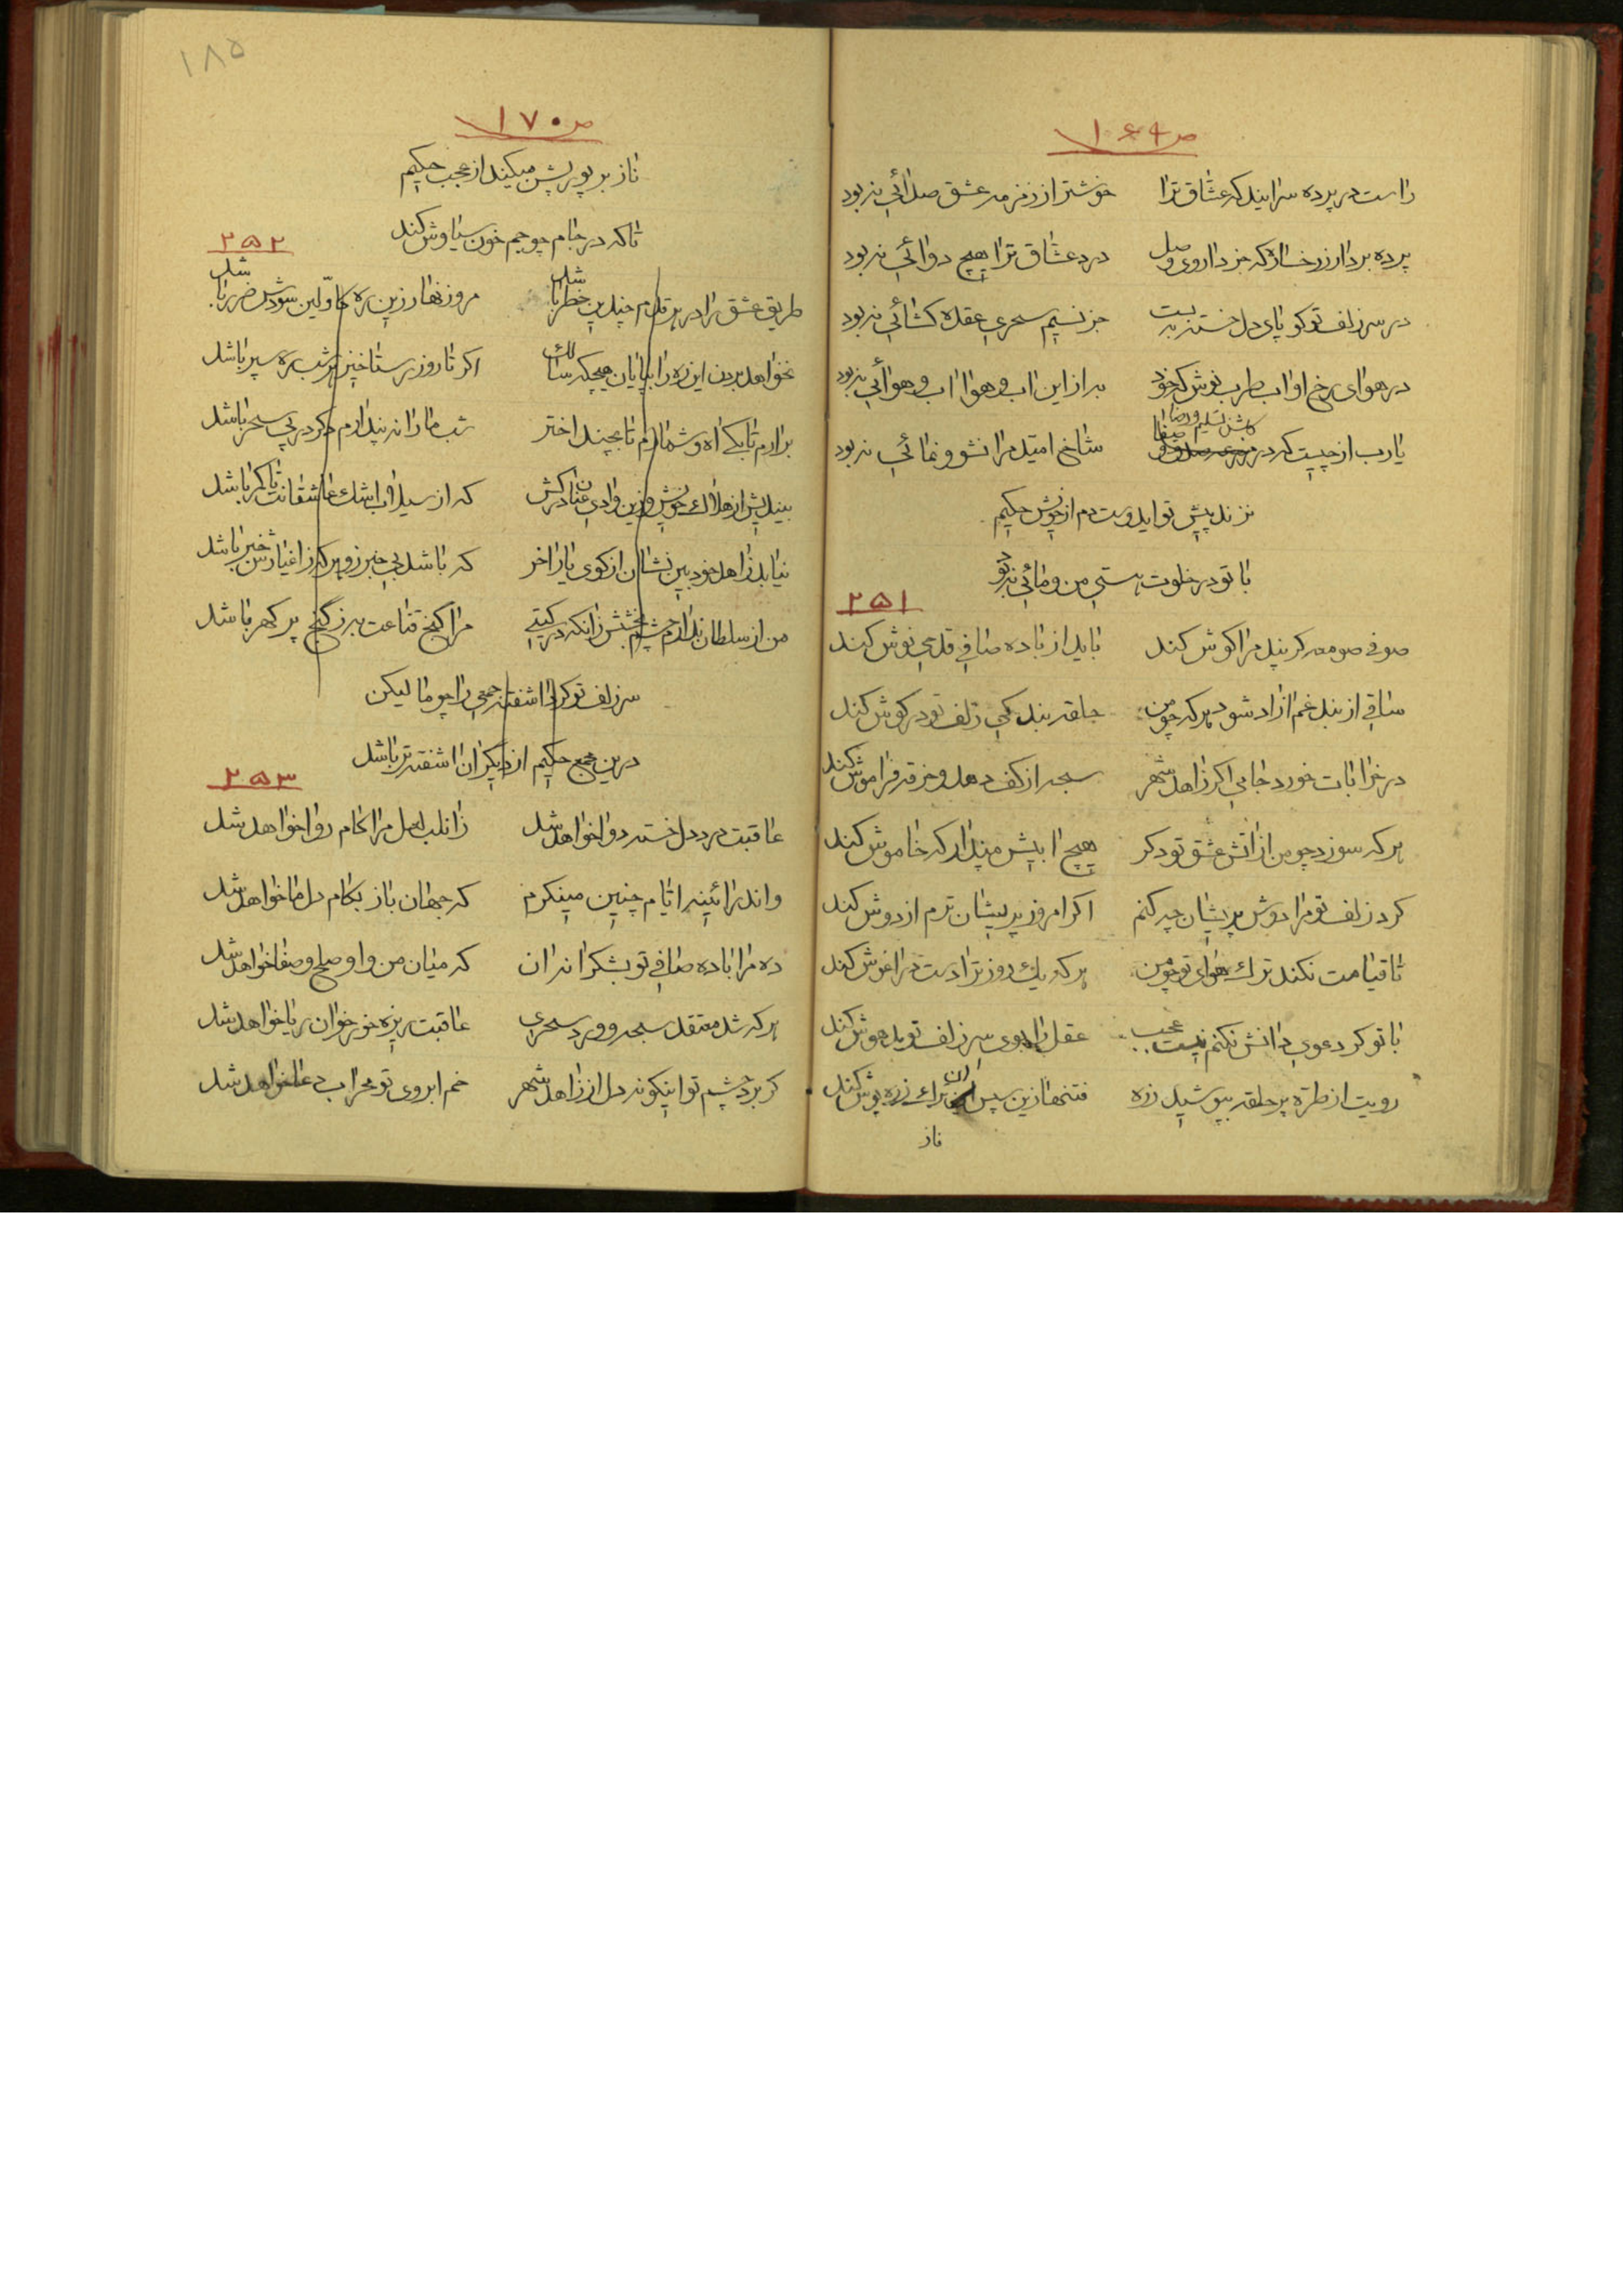 ص ۱۶۹
راست در پرده سرایید که عشاق ترا خوشتر از زمزمه عشق صدائی نبود
پرده بردار ز رخساره که جز داروی وصل درد عشاق ترا هیچ دوائی نبود
در سر زلف تو کو پای دل خسته ببست جز نسیم سحری عقده کشائی نبود
در هوای رخ او اب طرب نوش که خود به از این اب و هوا اب و هوائی نبود
یارب از چیست که در گلشن تسلیم و رضا شاخ امید مرا نشو و نمائی نبود
نزند پیش تو ایدوست دم از خویش حکیم
با تو در خلوت هستی من و مائی نبود
۲۵۱
صوفی صومعه گر پند مرا گوش کند باید از باده صافی قدحی نوش کند
ساقی از بند غم ازاد شود هر که چو من حلقه بندگی زلف تو در گوش کند
در خرابات خورد جامی اگر زاهد شهر سبحه از کف دهد و خرقه فراموش کند
هر که سوزد چو من از اتش عشق تو دگر هیچ ابیش مپندار که خاموش کند
کرد زلف تو مرا دوش پریشان چه کنم اگر امروز پریشان ترم از دوش کند
تا قیامت نکند ترك هوای تو چو من هر که یك روز ترا دست در اغوش کند
با تو گر دعوی دانش نکنم نیست عجب عقل را بوی سر زلف تو بیهوش کند
رویت از طره پر حلقه بپوشید زره فتنها زین سپس ان ترك زره پوش کند
ناز
۱۸۵
ص ۱۷۰
ناز بر پور پشن میکند از عجب حکیم
تا که در جام چو جم خون سیاوش کند
۲۵۲
طریق عشق را در هر قدم چندین خطر باشد مرو زنهار زین ره کاولین سودش ضرر باشد
نخواهد بردن این ره را بپایان هیچگه سالك اگر تا روز رستاخیز هر شب ره سپر باشد
برارم تا بکی اه و شمارم تا بچند اختر شب ما را نه پندارم دگر در پی سحر باشد
بیندیش از هلاك خویش و زین وادی عنان درکش که از سیلاب اشك عاشقانت تا کمر باشد
نیابد زاهد خود بین نشان از کوی یار اخر که باشد بی خبر زو هر که ز اغیارش خبر باشد
من از سلطان ندارم چشم بخشش زانکه در گیتی مرا کنج قناعت به ز گنج پر گهر باشد
سر زلف تو کرد اشفته جمعی را چو ما لیکن
درین جمع حکیم از دیگران اشفته تر باشد
۲۵۳
عاقبت درد دل خسته دوا خواهد شد زان لب لعل مرا کام روا خواهد شد
واندر ائینه ایام چنین مینگرم که جهان باز بکام دل ما خواهد شد
ده مرا باده صافی تو بشکرانه ان که میان من و او صلح و صفا خواهد شد
هر که شد معتقد سبحه و ورد سحری عاقبت ریزه خور خوان ریا خواهد شد
گر برد چشم تو اینگونه دل از زاهد شهر خم ابروی تو محراب دعا خواهد شد